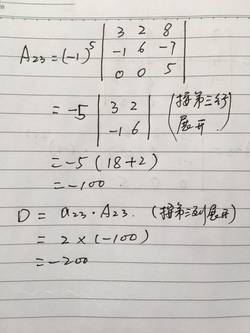 A₂₃ = (-1)⁵ | 3 2 8 |
| -1 6 -7 |
| 0 0 5 |
= -5 | 3 2 | (按第三行
| -1 6 | 展开.)
= -5 (18+2)
= -100.
D = a₂₃ · A₂₃. (按第三列展开)
= 2 × (-100)
= -200